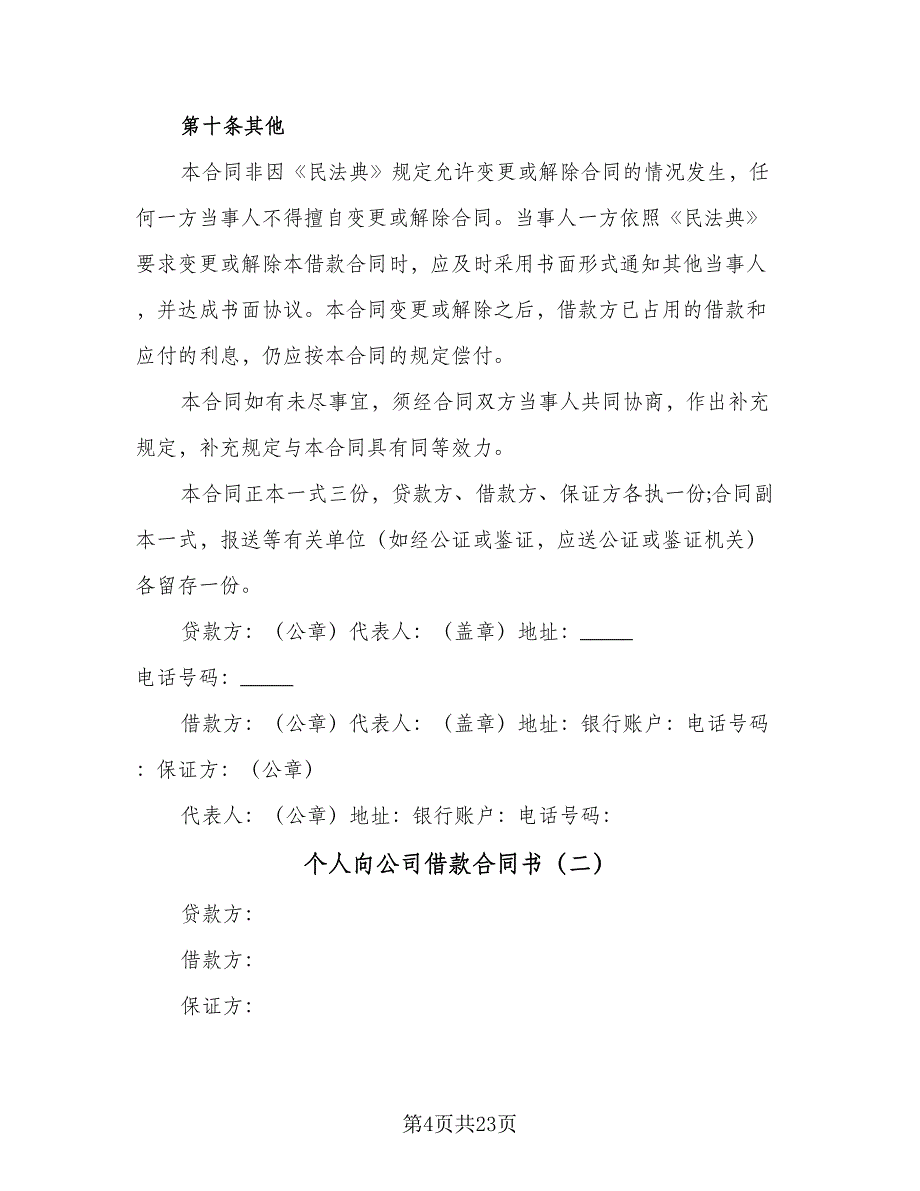 第十条其他
本合同非因《民法典》规定允许变更或解除合同的情况发生，任
何一方当事人不得擅自变更或解除合同。当事人一方依照《民法典》
要求变更或解除本借款合同时，应及时采用书面形式通知其他当事人
，并达成书面协议。本合同变更或解除之后，借款方已占用的借款和
应付的利息，仍应按本合同的规定偿付。
本合同如有未尽事宜，须经合同双方当事人共同协商，作出补充
规定，补充规定与本合同具有同等效力。
本合同正本一式三份，贷款方、借款方、保证方各执一份;合同副
本一式，报送等有关单位（如经公证或鉴证，应送公证或鉴证机关）
各留存一份。
贷款方：（公章）代表人：（盖章）地址：_____
电话号码：_____
借款方：（公章）代表人：（盖章）地址：银行账户：电话号码
：保证方：（公章）
代表人：（公章）地址：银行账户：电话号码：
个人向公司借款合同书（二）
贷款方：
借款方：
保证方：
第4页共23页